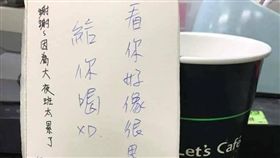 看你好像很累
給你喝XD
謝謝~因為大夜班太累了
Let's Café